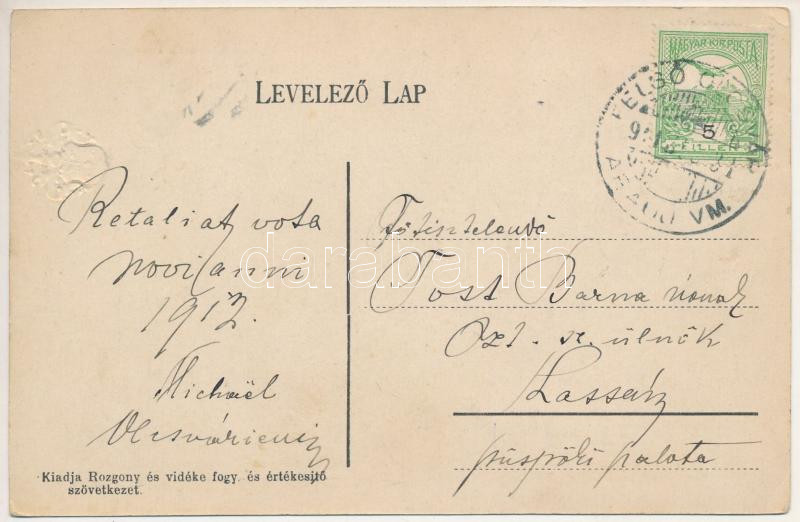 LEVELEZŐ LAP
MAGYAR KIR. POSTA
5
FILLÉR
FELSŐ
VM.
Retaliat vota
novi anni
1912.
Michaël
Főtisztelendő
Tost Barna úrnak
szt. sz. ülnök
Kassán
püspöki palota
Kiadja Rozgony és vidéke fogy. és értékesítő
szövetkezet.
darabanth